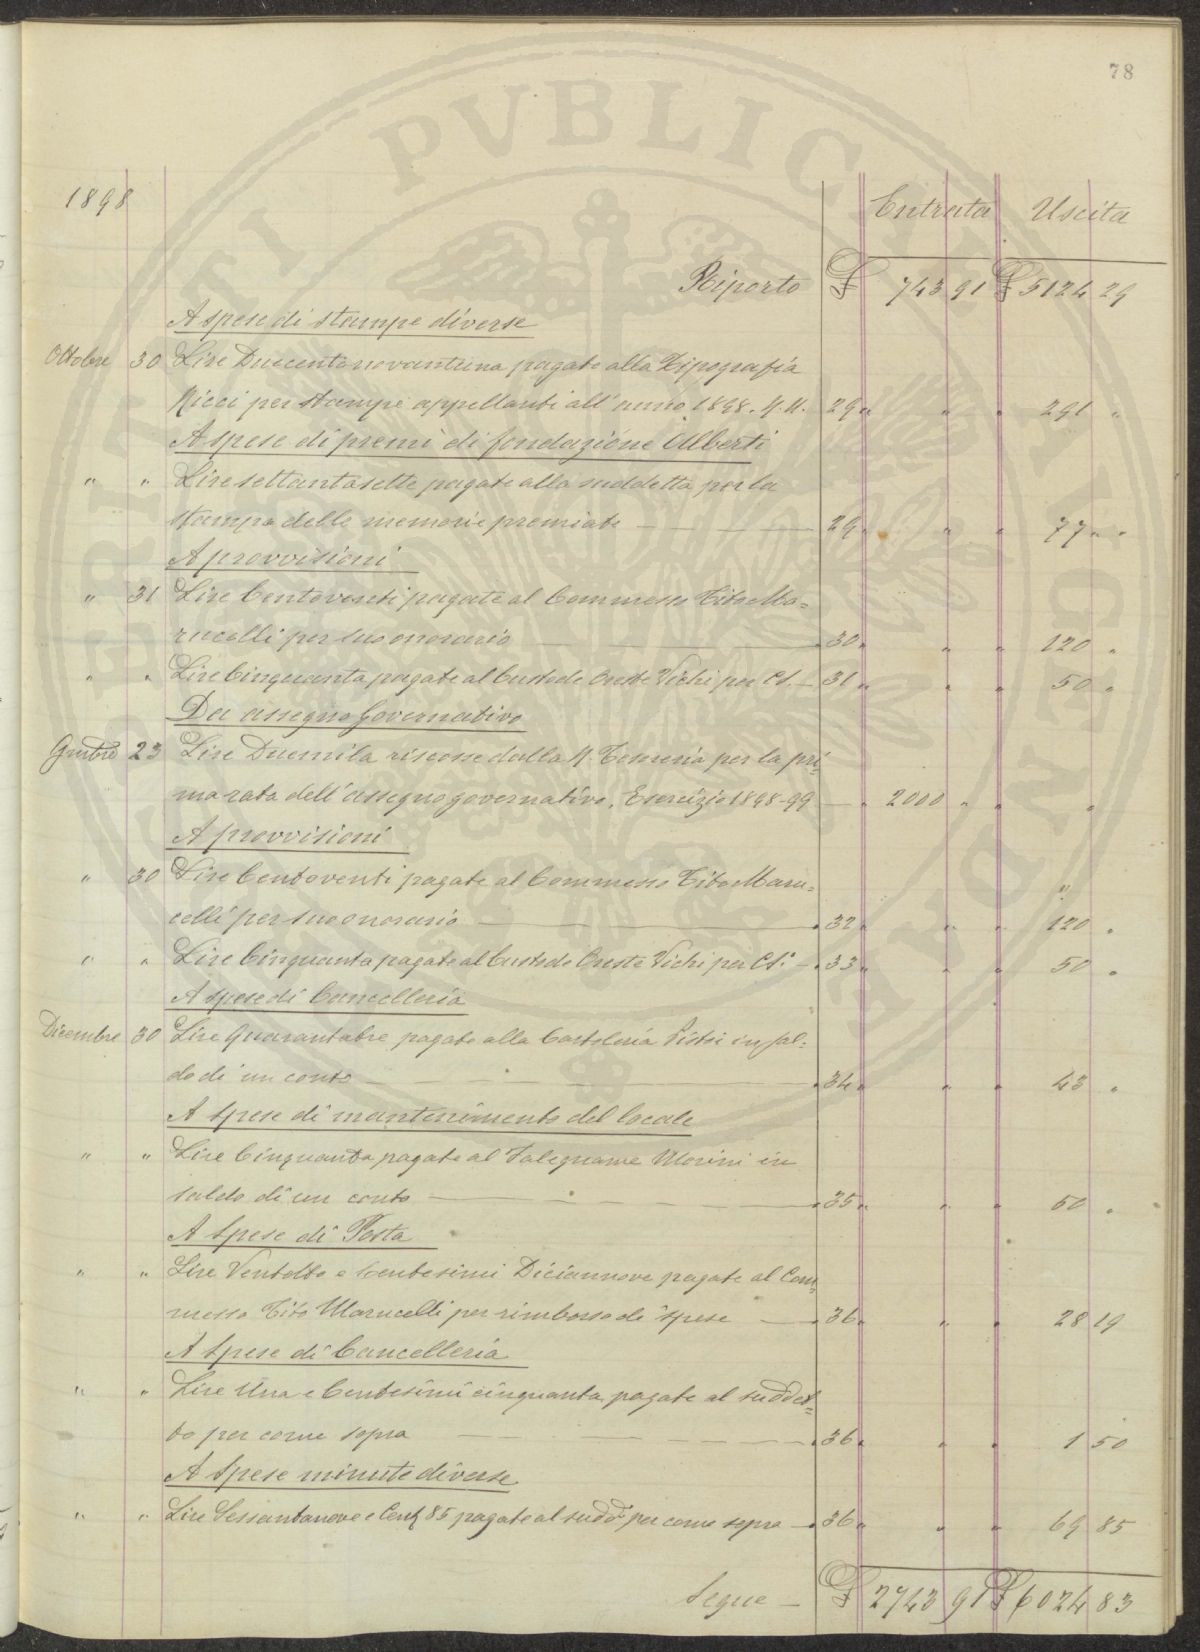 78
1898
Entrata Uscita
Riporto £ 743 91 £ 5124 29
A spese di stampe diverse
Ottobre 30 Lire Duecentonovantuna pagate alla Tipografia
Ricci per stampe appellanti all'anno 1898. 29 " " " 291 "
A spese di premi di fondazione Alberti
" " Lire settantasette pagate alla suddetta per la
stampa delle memorie premiate — 29 " " " 77 " "
A provvisioni
" 31 Lire Centoventi pagate al Commesso Tito Ma=
rucelli per suo onorario — 30 " " " 120 "
" " Lire Cinquanta pagate al Custode Oreste Vichi per Cs. — 31 " " " 50 "
Da assegno Governativo
23 Lire Duemila riscosse dalla R. Tesoreria per la pri=
ma rata dell'assegno governativo, Esercizio 1898-99 — " 2000 " " "
A provvisioni
" 30 Lire Centoventi pagate al Commesso Tito Maru= "
celli per suo onorario — 32 " " " 120 "
" " Lire Cinquanta pagate al Custode Oreste Vichi per Cs.° — 33 " " " 50 "
A spese di Cancelleria
Dicembre 30 Lire Quarantatre pagate alla Cartoleria Pistoi in sal=
do di un conto — 34 " " " 43 "
A spese di mantenimento del locale
" " Lire Cinquanta pagate al Falegname Morini in
saldo di un conto — 35 " " " 50 "
A Spese di Posta
" " Lire Ventotto e Centesimi Diciannove pagate al Com=
messo Tito Marucelli per rimborso di spese — 36 " " " 28 19
A Spese di Cancelleria
" " Lire Una e Centesimi cinquanta pagate al suddet=
to per come sopra — 36 " " " 1 50
A Spese minute diverse
" " Lire Sessantanove e Cent. 85 pagate al sudd.° per come sopra — 36 " " " 69 85
Segue — £ 2743 91 £ 6024 83
PVBLICAE